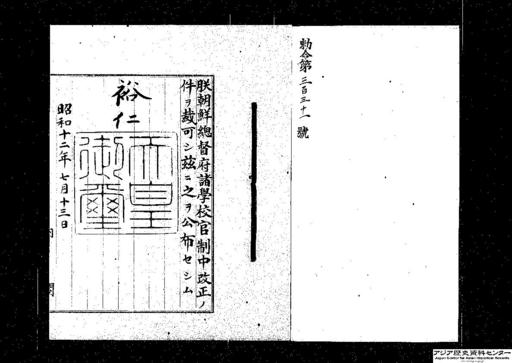 勅令第三百三十一號
朕朝鮮總督府諸學校官制中改正ノ
件ヲ裁可シ茲ニ之ヲ公布セシム
裕仁
天皇
御璽
昭和十二年七月十三日
内閣
アジア歴史資料センター
Japan Center for Asian Historical Records